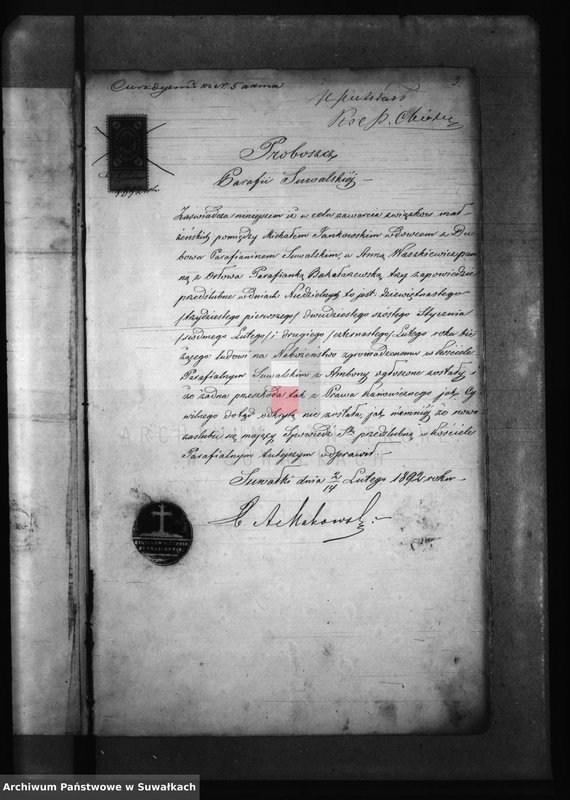 3
Proboszcz
Parafii Suwalskiéj
Zaświadcza niniejszem iż w celu zawarcia związków mał-
żeńskich pomiędzy Michałem Jankowskim wdowcem z Du-
bowa Parafianinem Suwalskim, a Anną Waszkiewicz pan-
ną z Orłowa Parafianką Bakałarzewską trzy zapowiedzie
przedślubne w dniach Niedzielnych to jest: dziewiętnastego
/trzydziestego pierwszego/ dwudziestego szóstego Stycznia
/siódmego Lutego/ i drugiego /czternastego/ Lutego roku bie-
żącego ludowi na Nabożeństwo zgromadzonemu w kościele
Parafialnym Suwalskim z Ambony ogłoszone zostały, i
że żadna przeszkoda tak z Prawa Kanonicznego jak Cy-
wilnego dotąd odkrytą nie została, jak niemniej że nowo
zaślubić się mający Spowiedź Stą przedślubną w Kościele
Parafialnym tutejszym odprawił.
Suwałki dnia 2/14 Lutego 1892 roku
X A Makowski
Archiwum Państwowe w Suwałkach